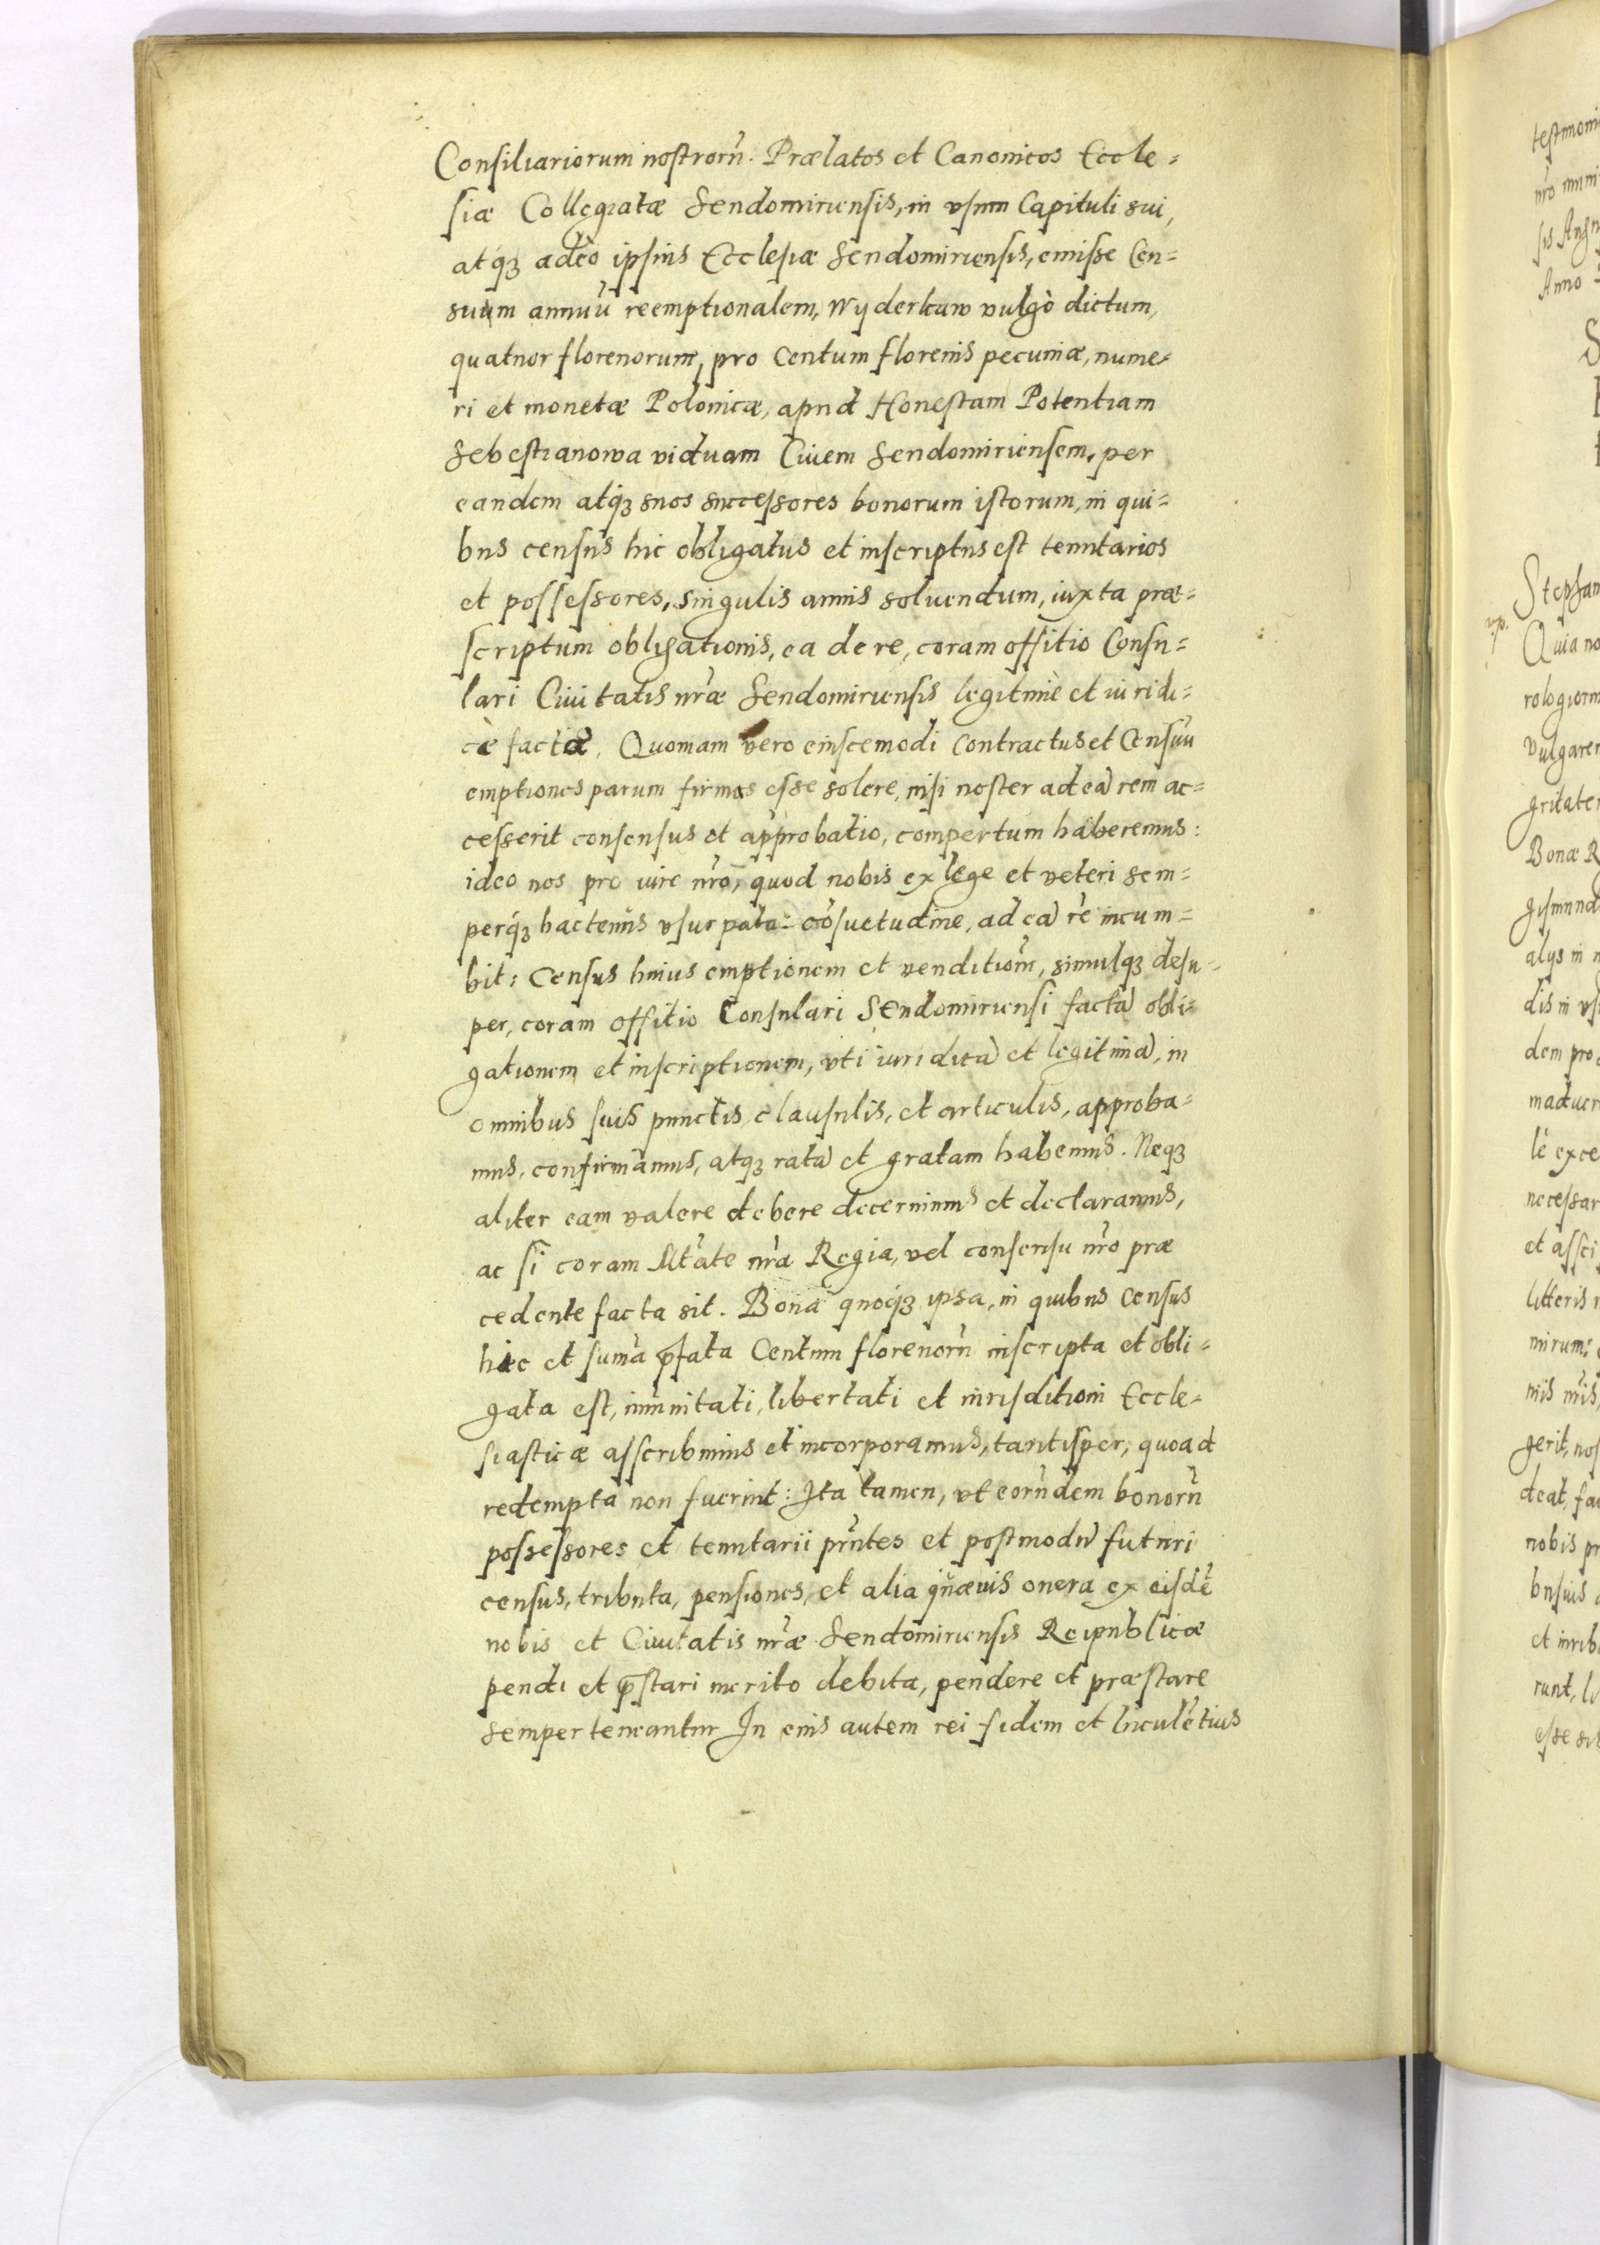 Consiliariorum nostrorũ. Prælatos et Canonicos Eccle=
siæ Collegiatæ Sendomiriensis, in vsum Capituli sui,
atq́ꝫ adeò ipsius Ecclesiæ Sendomiriensis, emisse Cen=
suum annuũ reemptionalem, Wyderkaw vulgò dictum,
quatuor florenorum, pro centum florenis pecuniæ, nume=
ri et monetæ Polonicæ, apud Honestam Potentiam
Sebestianowa viduam Ciuem Sendomiriensem, per
eandem atq́ꝫ suos successores bonorum istorum, in qui=
bus census hic obligatus et inscriptus est tenutarios
et possessores, singulis annis soluendum, iuxta præ=
scriptum obligationis, ea de re, coram offitio Consu=
lari Ciuitatis nr̃æ Sendomiriensis legitimè et iuridi=
cè factæ. Quoniam vero eiuscemodi contractus et Censuũ
emptiones parum firmas esse solere, nisi noster ad eã rem ac=
cesserit consensus et approbatio, compertum haberemus:
ideo nos pro iure nr̃o, quod nobis ex lege et veteri sem=
perq́ꝫ hactenus vsurpata cõsuetudine, ad eã rẽ incum=
bit: Census huius emptionem et venditionẽ, simulqꝫ desu=
per, coram offitio Consulari Sendomiriensi factã obli=
gationem et inscriptionem, vti iuridicã et legitimã, in
omnibus suis punctis, clausulis, et articulis, approba=
mus, confirmamus, atqꝫ ratã et gratam habemus. Neqꝫ
aliter eam valere debere decernimus et declaramus,
ac si coram Mt̃ate nr̃a Regia, vel consensu nr̃o præ
cedente facta sit. Bona quoq́ꝫ ipsa, in quibus census
hic et sum̃a p̃fata Centum florenorũ inscripta et obli=
gata est, im̃unitati, libertati et iurisditioni Eccle=
siasticæ asscribimus et incorporamus, tantisper, quoad
redempta non fuerint: Ita tamen, vt eorũdem bonorũ
possessores et tenutarii pr̃ntes et postmodũ futuri
census, tributa, pensiones, et alia quæuis onera ex eisdẽ
nobis et Ciuitatis nr̃æ Sendomiriensis Reipublicæ
pendi et p̃stari merito debita, pendere et præstare
semper teneantur In cuius autem rei fidem et luculẽtius
testimoni
Anno
Stephan
Quia no
rologiorum
vulgarem
gritatem
Bonæ R
gismund
alys in n
dis in vs
dem pro
maduer
le exce
necessar
et assci
litteris
mirum:
nis nr̃is,
gerit, nos
deat, fa
nobis pr
et iurib
runt, li
esse